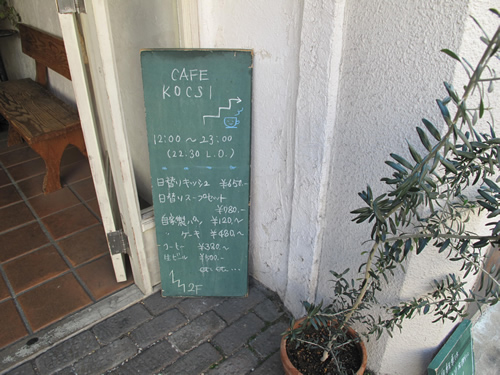 CAFE
KOCSI
12:00～23:00
(22:30 L.O.)
日替りキッシュ ¥650.-
日替りスープセット
¥780.-
自家製パン ¥120～
・ケーキ ¥480.～
コーヒー ¥380.～
生ビール ¥500.-
etc. etc. ...
2F